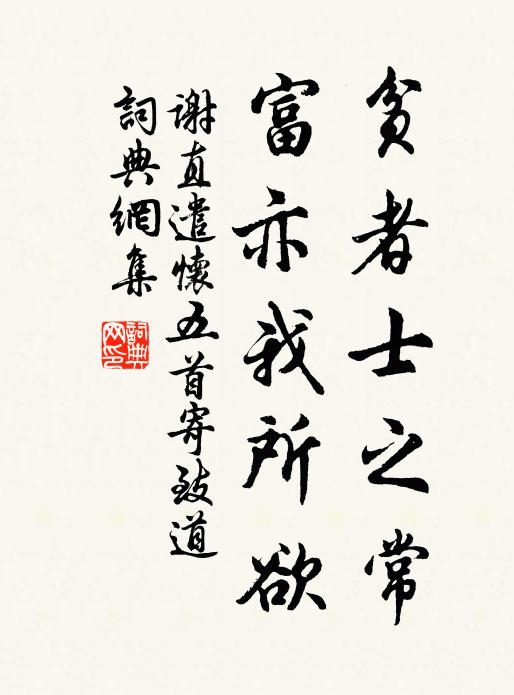 貧者士之常
富亦我所欲
謝直遣懷五首寄致道
詞典網集
詞典網印